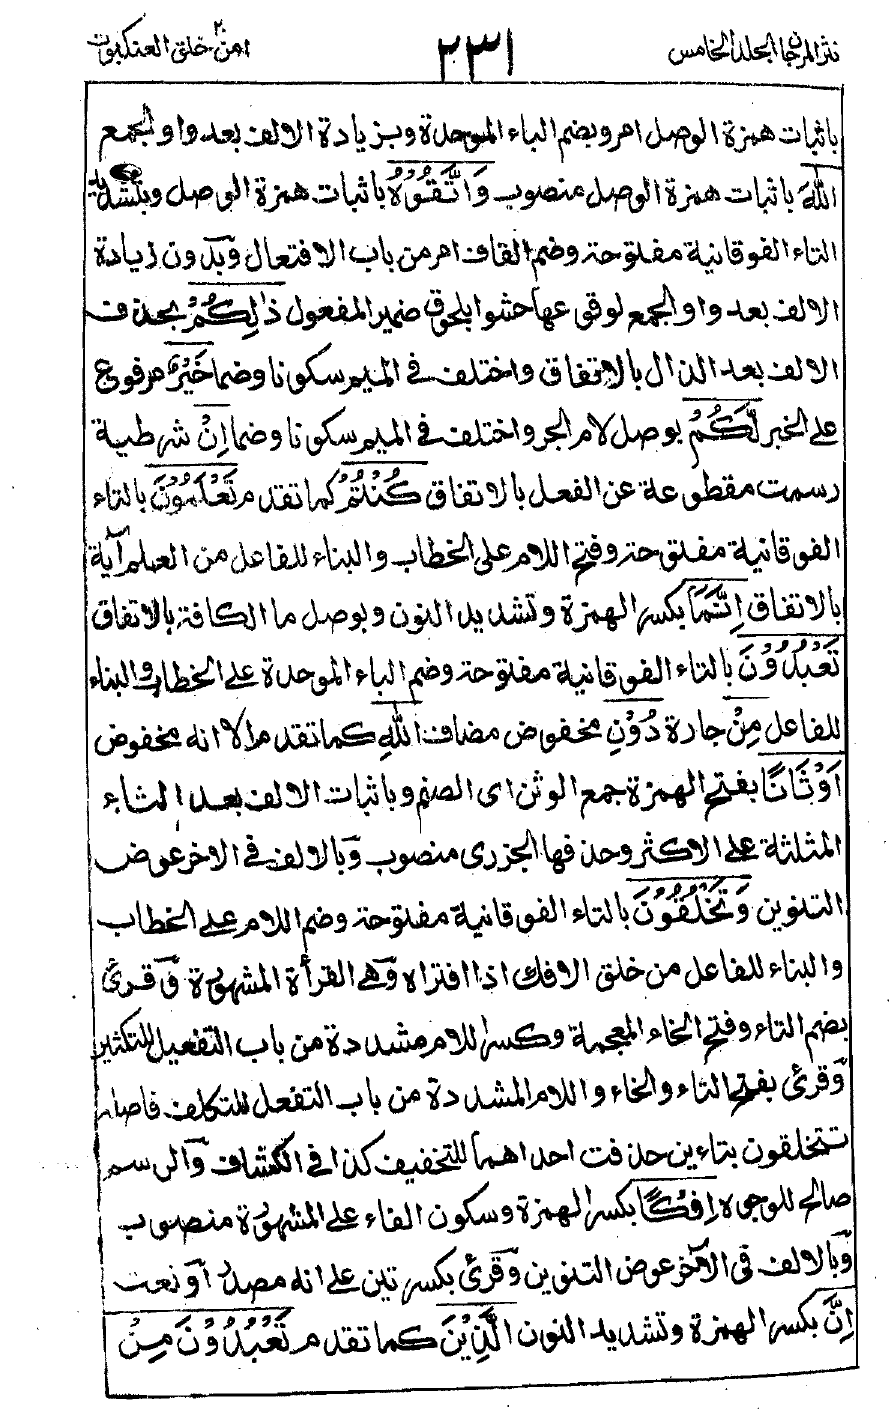 نثر المرجان المجلد الخامس ٢٣١ امن خلق ٢٠ العنكبوت
باثبات همزة الوصل امر وبضم الباء الموحدة وبزيادة الالف بعد واو الجمع
اللهَ باثبات همزة الوصل منصوب وَاتَّقُوْهُ باثبات همزة الوصل وبتشديد
التاء الفوقانية مفتوحة وضم القاف امر من باب الافتعال وبدون زيادة
الالف بعد واو الجمع لوقوعها حشوا بلحوق ضمير المفعول ذٰلِكُمْ بحذف
الالف بعد الذال بالاتفاق واختلف في الميم سكونا وضما خَيْرٌ مرفوع
على الخبر لَّكُمْ بوصل لام الجر واختلف في الميم سكونا وضما اِنْ شرطية
رسمت مقطوعة عن الفعل بالاتفاق كُنْتُمْ كما تقدم تَعْلَمُوْنَ بالتاء
الفوقانية مفتوحة وفتح اللام على الخطاب والبناء للفاعل من العلم آية
بالاتفاق اِنَّمَا بكسر الهمزة وتشديد النون وبوصل ما الكافة بالاتفاق
تَعْبُدُوْنَ بالتاء الفوقانية مفتوحة وضم الباء الموحدة على الخطاب والبناء
للفاعل مِنْ جارة دُوْنِ مخفوض مضاف اللهِ كما تقدم الا انه مخفوض
اَوْثَانًا بفتح الهمزة جمع الوثن اى الصنم وباثبات الالف بعد الثاء
المثلثة على الاكثر وحذفها الجزرى منصوب وبالالف في الاخر عوض
التنوين وَتَخْلُقُوْنَ بالتاء الفوقانية مفتوحة وضم اللام على الخطاب
والبناء للفاعل من خلق الافك اذا افتراه وهي القرأة المشهورة وقرئ
بضم التاء وفتح الخاء المعجمة وكسر اللام مشددة من باب التفعيل للتكثير
وقرئ بفتح التاء والخاء واللام المشددة من باب التفعل للتكلف فاصله
تتخلقون بتاءين حذفت احداهما للتخفيف كذا في الكشاف والرسم
صالح للوجوه اِفْكًا بكسر الهمزة وسكون الفاء على المشهورة منصوب
وبالالف في الآخر عوض التنوين وقرئ بكسرتين على انه مصدر او نعت
اِنَّ بكسر الهمزة وتشديد النون الَّذِيْنَ كما تقدم تَعْبُدُوْنَ مِنْ